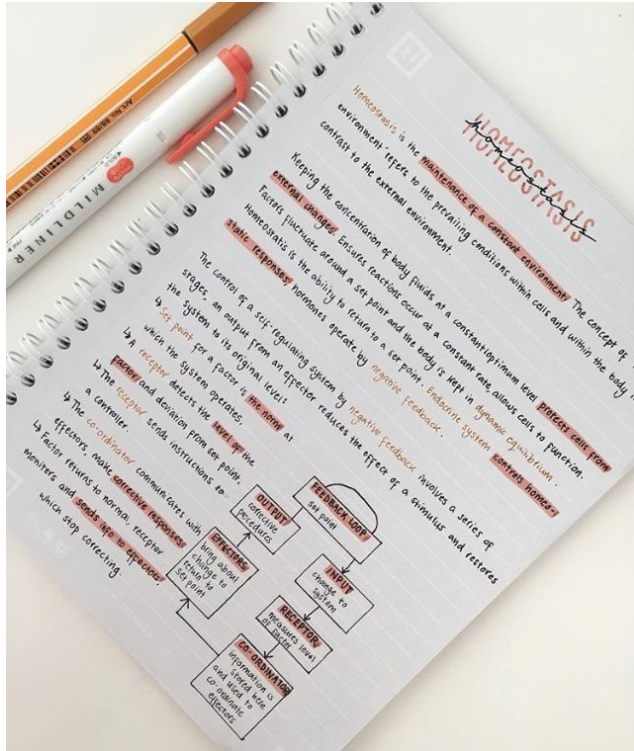 HOMEOSTASIS
homeostasis
Homeostasis is the maintenance of a constant environment. The concept of
environment" refers to the prevailing conditions within cells and within the body
contrast to the external environment.
Keeping the concentration of body fluids at a constant/optimum level protects cells from
external changes. Ensures reactions occur at a constant rate allows cells to function.
Factors fluctuate around a set point and the body is kept in dynamic equilibrium.
Homeostatis is the ability to return to a set point. Endocrine system controls homeo-
static responses hormones operate by negative feedback.
The control of a self-regulating system by negative feedback involves a series of
stages, an output from an effector reduces the effect of a stimulus and restores
the system to its original level:
↳ Set point for a factor is the norm at
which the system operates.
↳ A receptor detects the level of the
factor and deviation from set point.
↳ The receptor sends instructions to
a controller.
↳ The co-ordinator communicates with
effectors, make corrective responses
↳ Factor returns to normal, receptor
monitors and sends info to effectors
which stop correcting.
FEEDBACK LOOP
set point
INPUT
change to
system
RECEPTOR
measures level
of factor
CO-ORDINATOR
information is
stored here
and used to
co-ordinate
effectors
EFFECTORS
bring about
change to
return to
set point
OUTPUT
corrective
procedures
MILDLINER
Art. No. 88/89